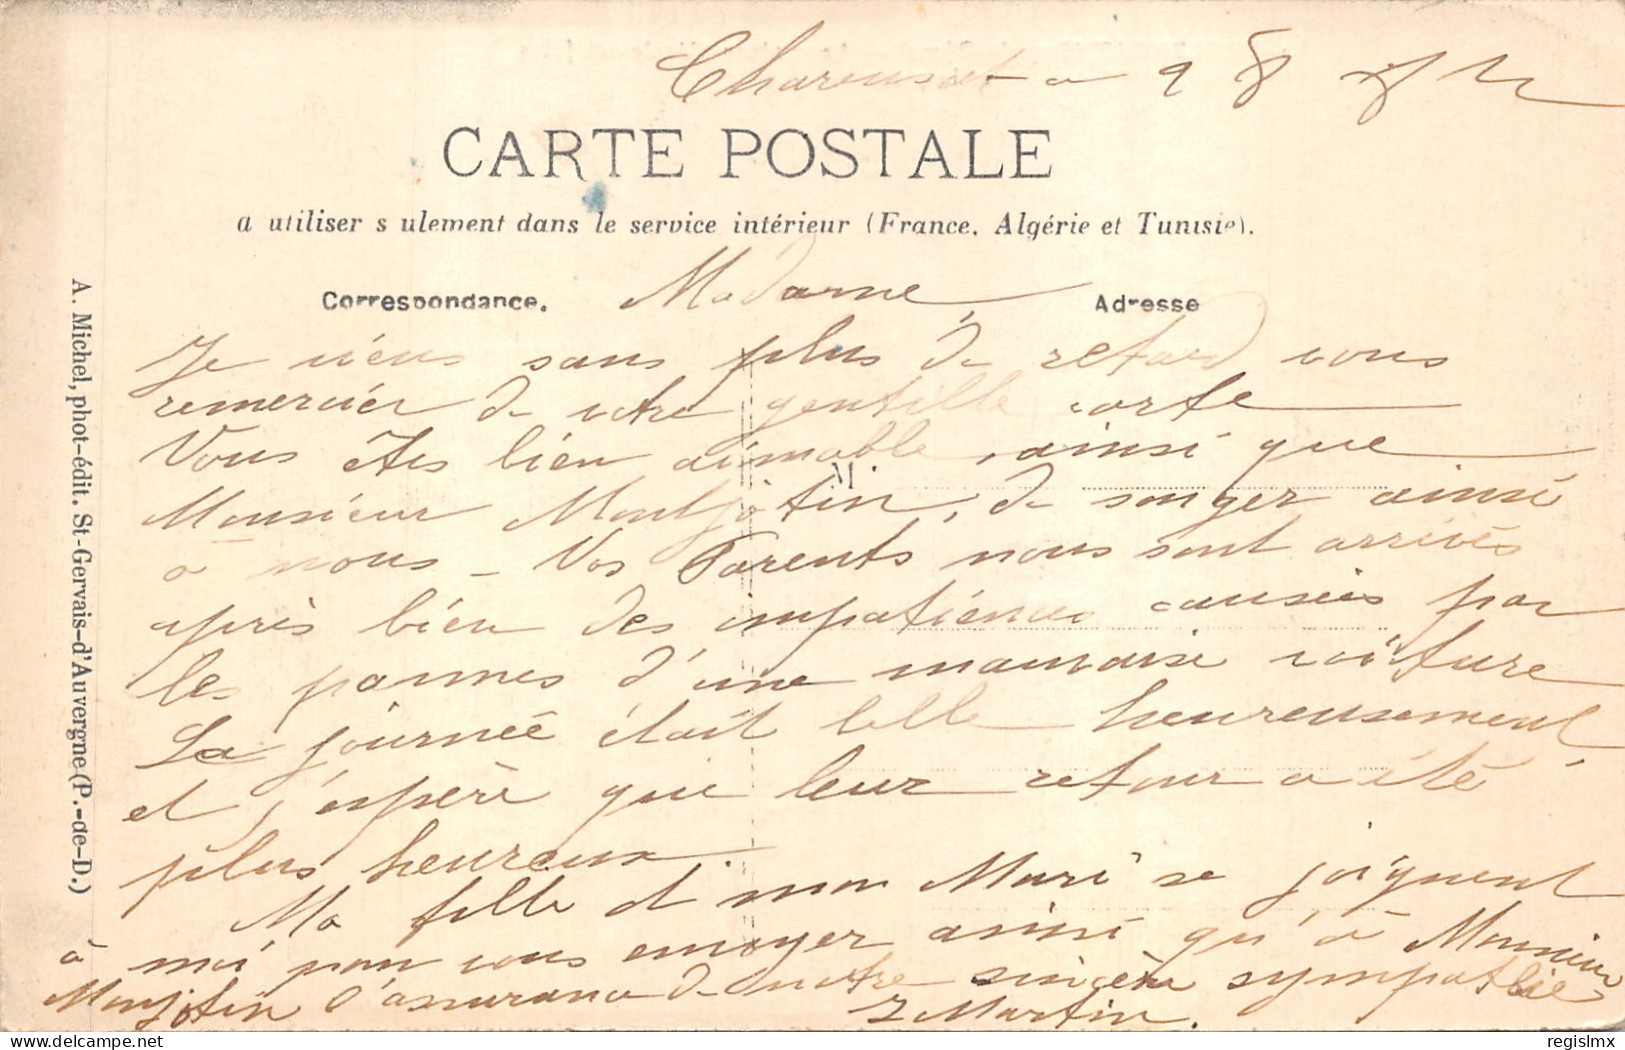 Charensat a 9 8
CARTE POSTALE
a utiliser s ulement dans le service intérieur (France, Algérie et Tunisie).
Correspondance.
Madame
Adresse
Je viens sans plus de retard vous
remercier de votre gentille carte
Vous êtes bien aimable, ainsi que
M
Monsieur Montjotin, de songer ainsi
à nous - Vos Parents nous sont arrivés
après bien des impatiences causées par
les pannes d'une mauvaise voiture
La journée était belle heureusement
et j'espère que leur retour a été
plus heureux.
Ma fille et mon Mari se joignent
à moi pour vous envoyer ainsi qu'à Monsieur
Montjotin l'assurance de notre sincère sympathie
J Martin.
A. Michel, phot-édit. St-Gervais-d'Auvergne (P.-de-D.)
regislmx